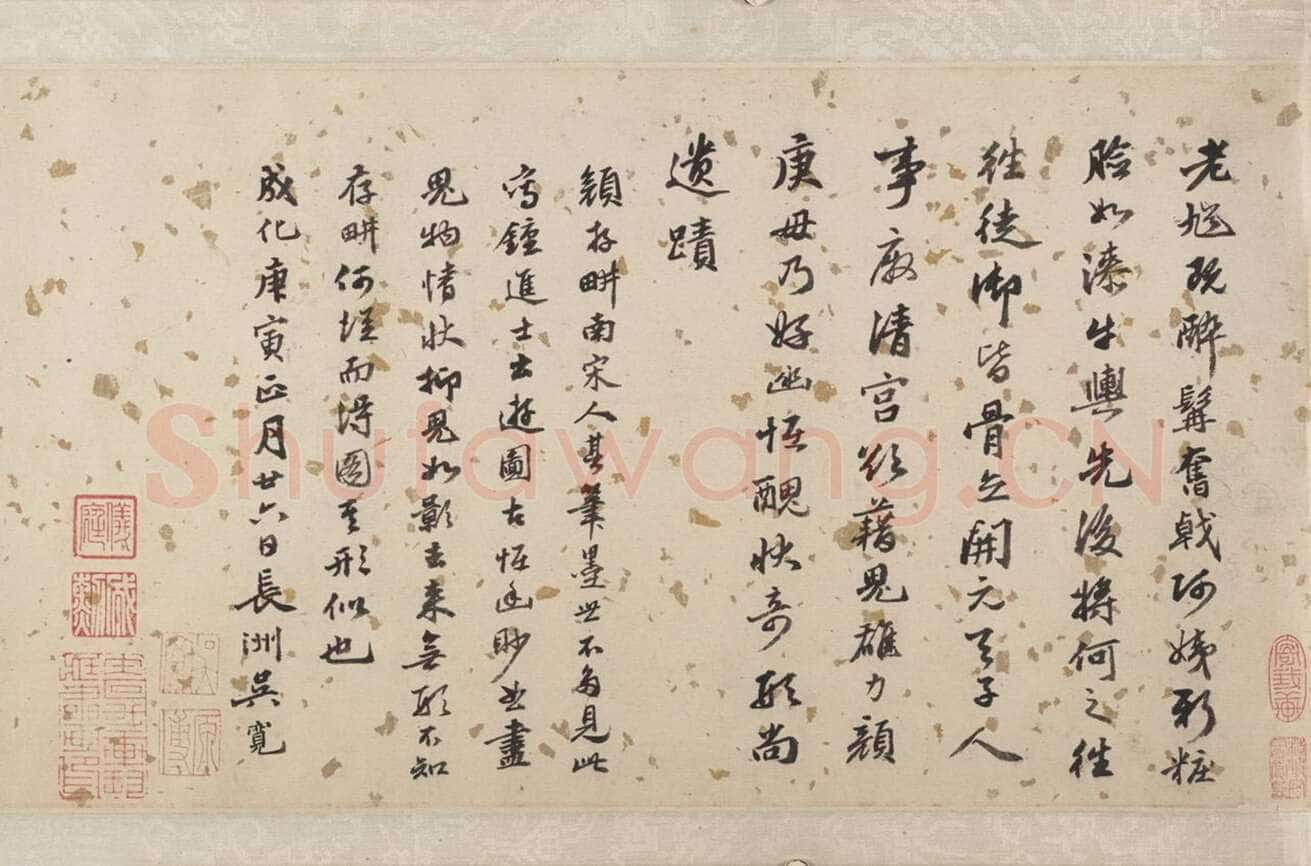 老馗既醉髯奮戟阿姨新粧
臉如漆牛輿先後將何之往
往徒御皆骨立開元天子人
事廢清宮欲藉鬼雄力顏
庚毋乃好幽怪醜狀奇形尚
遺蹟
顏存畊南宋人其筆墨世不多見此
寫鍾進士出遊圖古怪幽眇曲盡
鬼物情狀抑鬼如影去來無形不知
存畊何從而得圖其形似也
成化庚寅正月廿六日長洲吳寬
儀周
Shufawang.CN